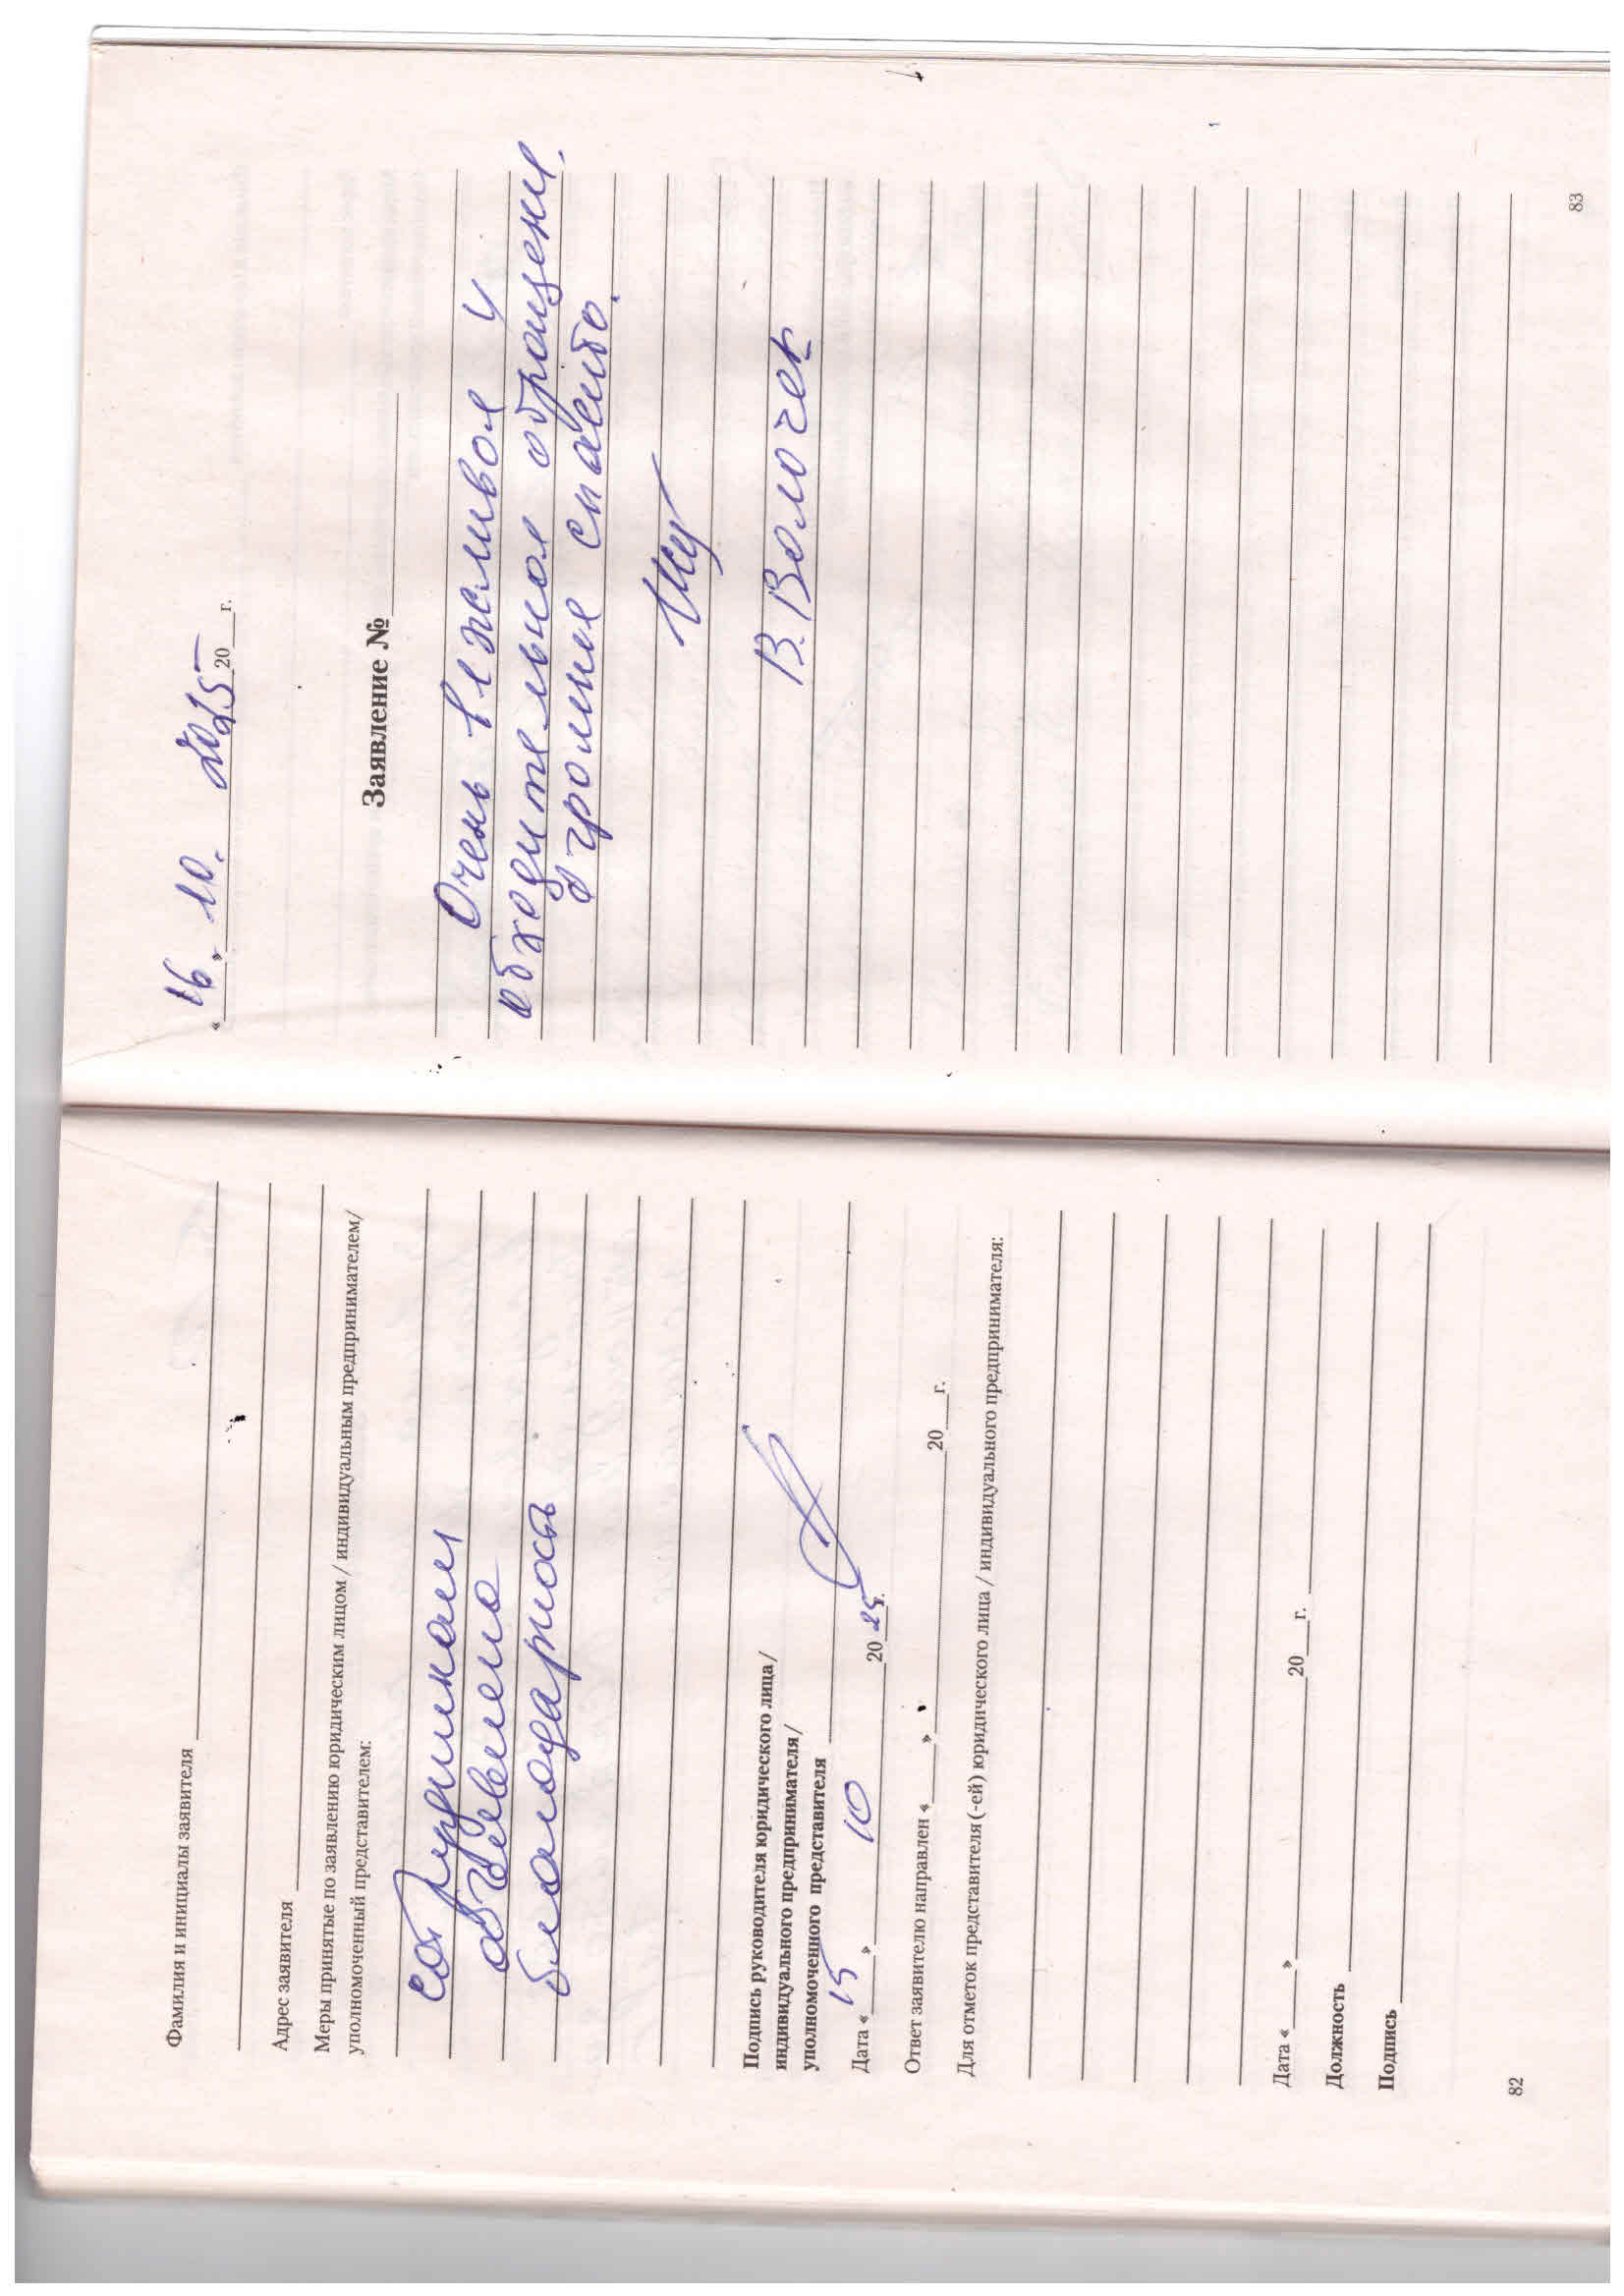 Фамилия и инициалы заявителя
Адрес заявителя
Меры принятые по заявлению юридическим лицом / индивидуальным предпринимателем/
уполномоченный представителем:
сотрудникам
объявлена
благодарность
Подпись руководителя юридического лица/
индивидуального предпринимателя/
уполномоченного представителя
Дата « 15 » 10 20 25 г.
Ответ заявителю направлен « » 20 г.
Для отметок представителя (-ей) юридического лица / индивидуального предпринимателя:
Дата « » 20 г.
Должность
Подпись
82
« 16 » 10. 2025 20 г.
Заявление №
Очень вежливое и
обходительное обращение.
Огромное спасибо.
В. Волочек
83